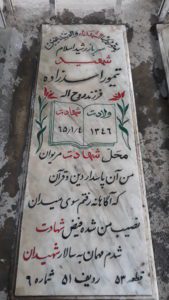 سرباز رشید اسلام
شهید
تیمور اسدزاده
فرزند روح اله
ولادت شهادت
۱۳۴۶ ۶۵/۱/۴
محل شهادت مریوان
من آن پاسدار دین و قرآن
که آگاهانه رفتم سوی میدان
نصیب من شده فیض شهادت
شدم مهمان به سالار شهیدان
قطعه ۵۳ ردیف ۵۱ شماره ۶